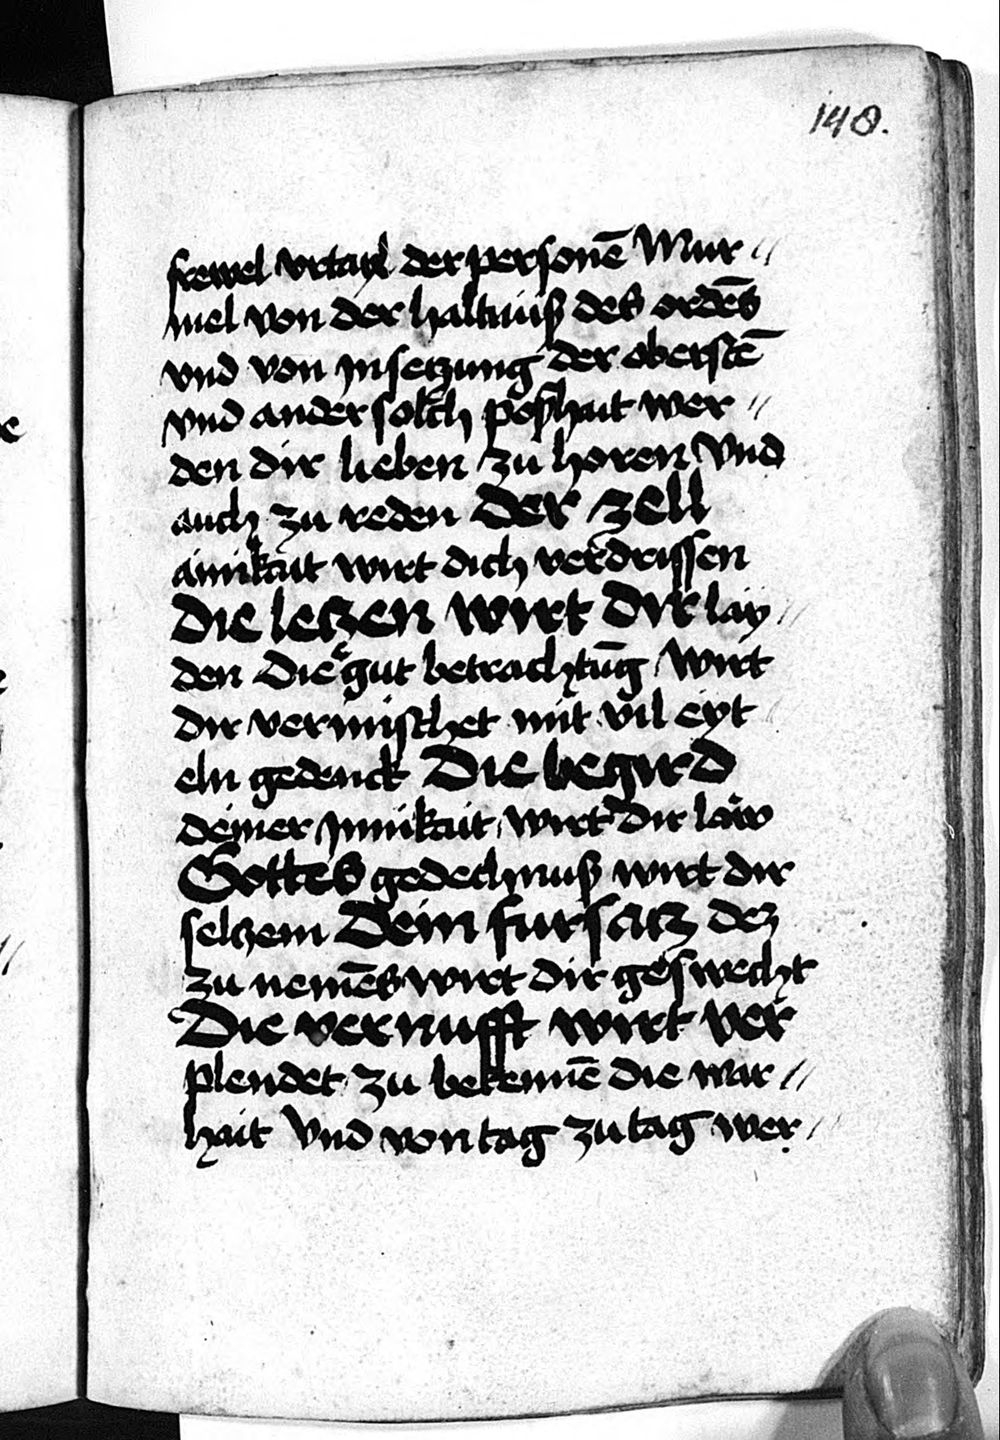 148.
frewel vrtayl der personē Mur〃
mel von der haltnuß des ordēs
vnd von jnsetzung der oberstē
vnd ander solch poßhait wer〃
den dir lieben zu horen vnd
auch zu reden Der zell
ainikait wirt dich verdrissen
Die letzen wirt Dir lay〃
den Die gut betrachtūg wirt
dir vermischet mit vil eyt
eln gedenck Die begird
deiner jnnikait wirt dir law
Gottes gedechnuß wirt dir
seltzem Dein fursatz dez
zu nemēs wirt dir geswecht
Die vernufft wirt ver
plendet zu bekennē die war〃
hait Vnd von tag zu tag wer〃